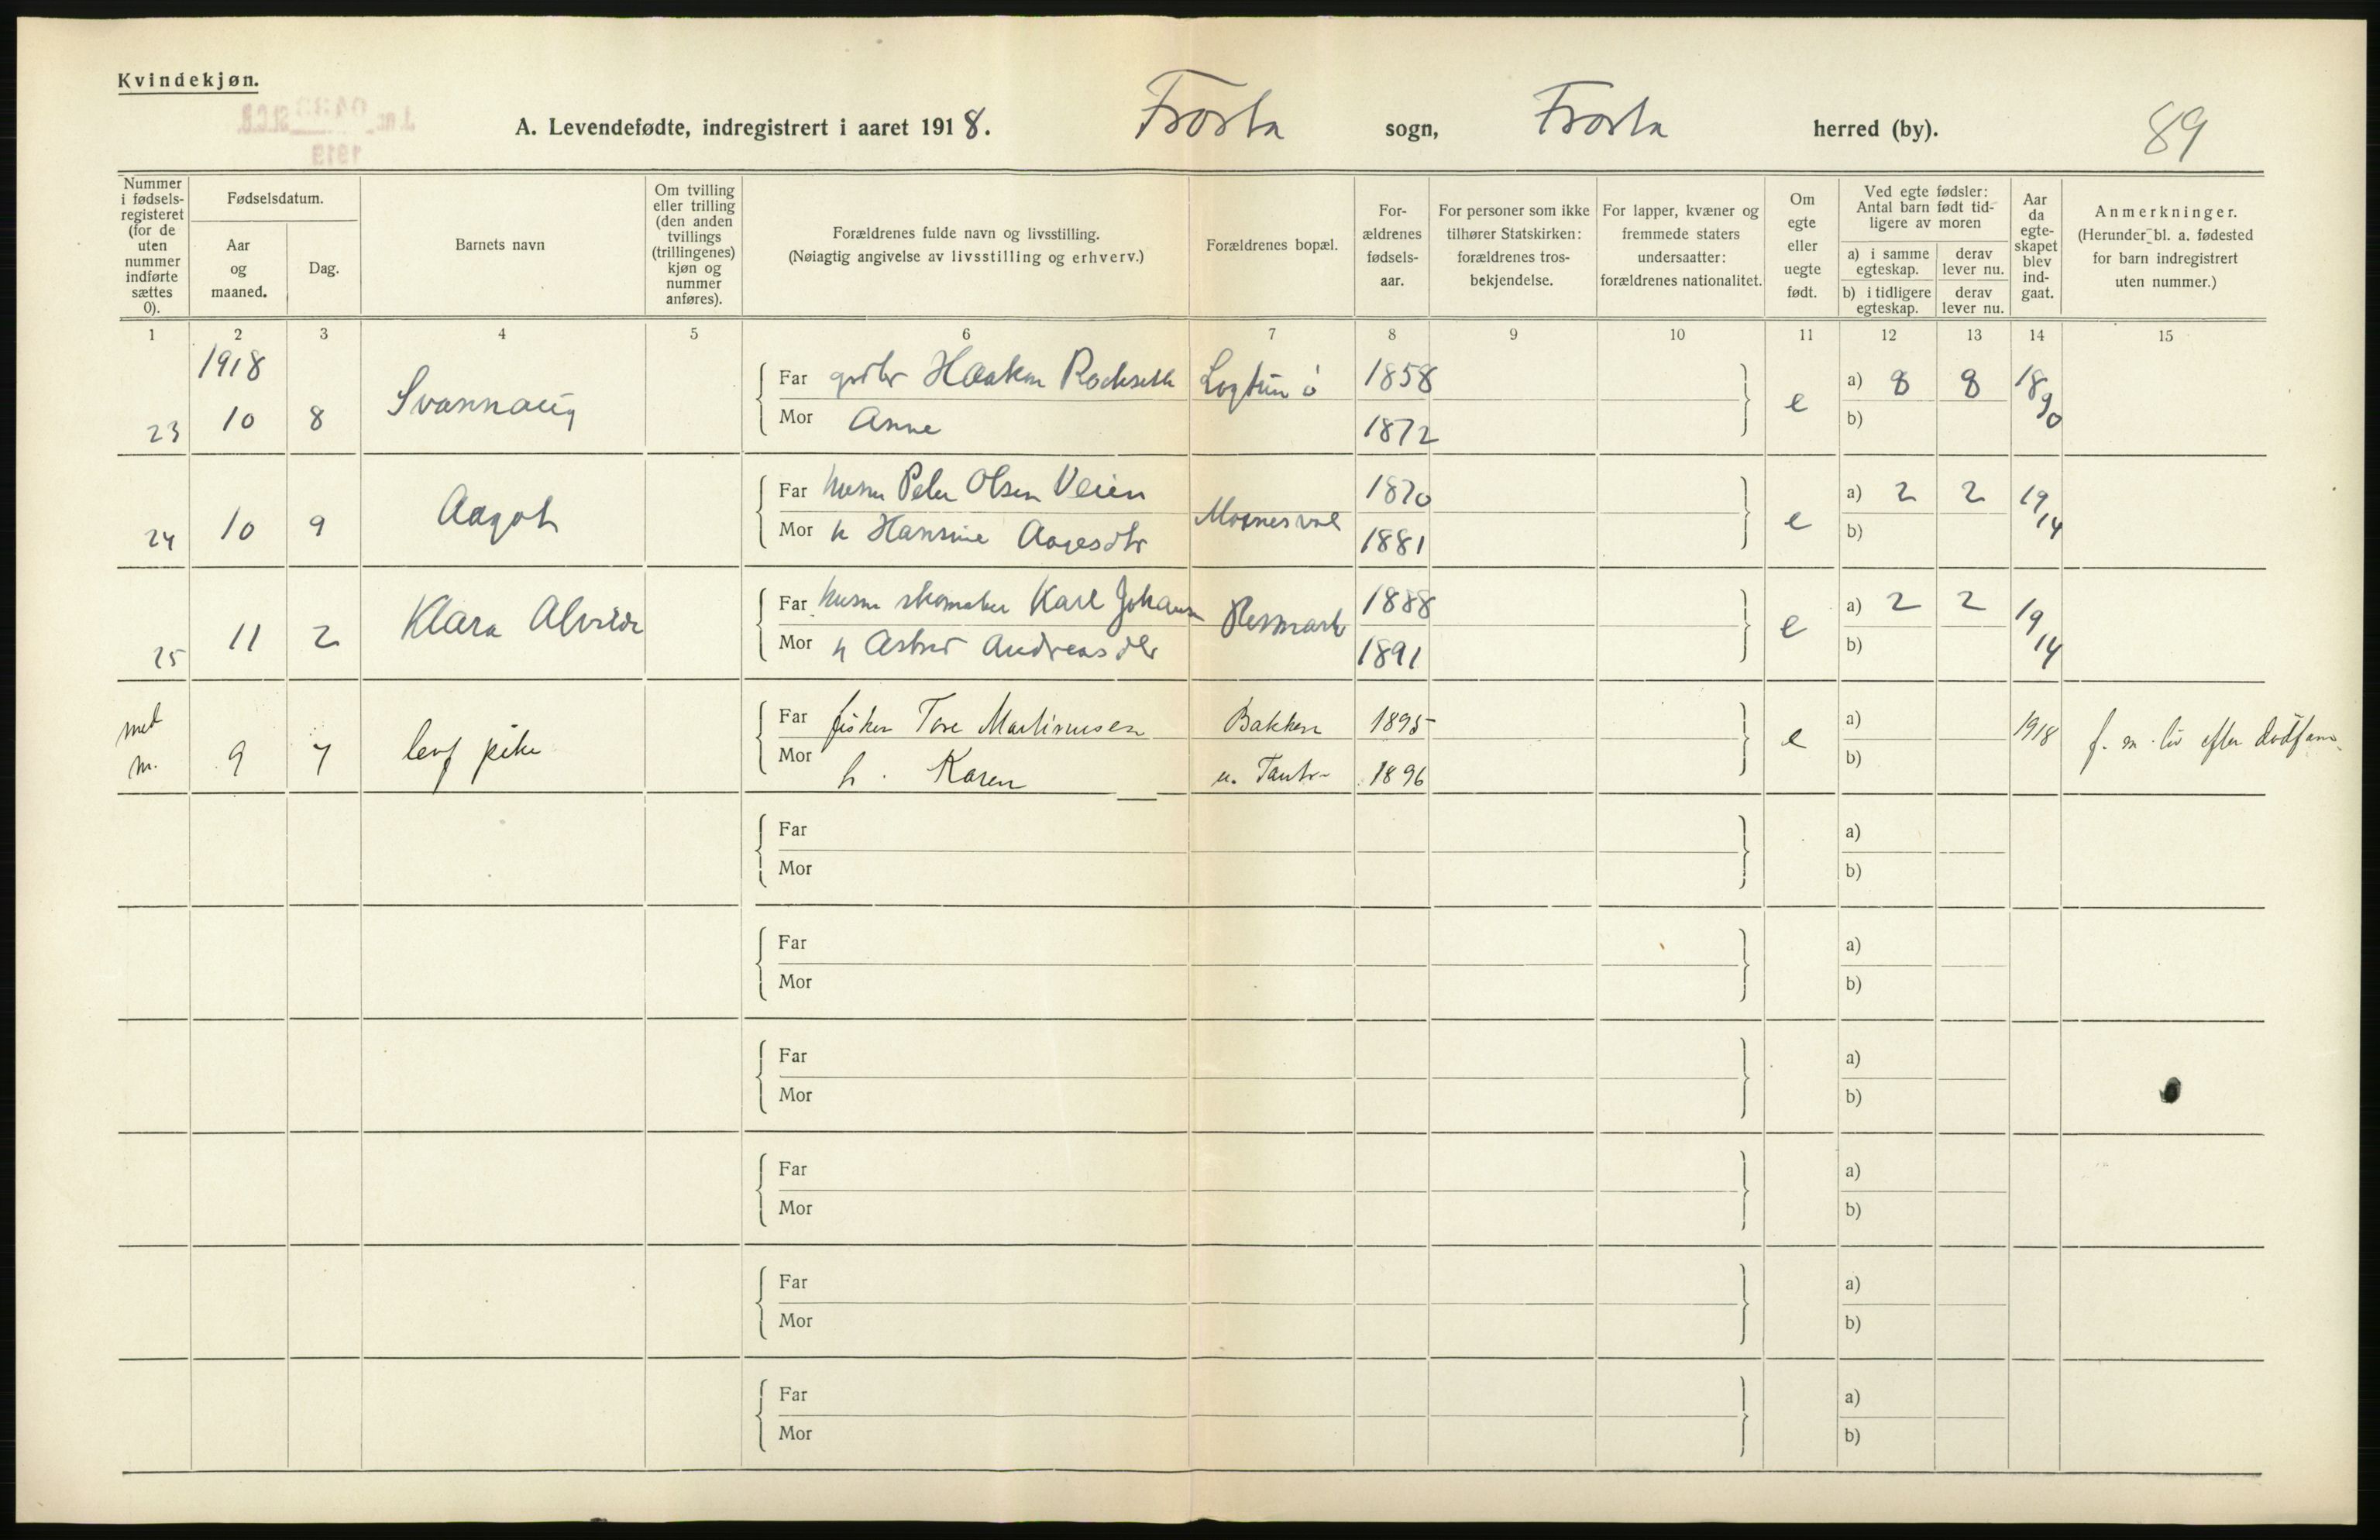 Kvindekjøn.
A. Levendefødte, indregistrert i aaret 1918. Frosta sogn, Frosta herred (by). 89
Nummer i fødselsregisteret (for de uten nummer indførte sættes 0).
Fødselsdatum.
Aar og maaned.
Dag.
Barnets navn
Om tvilling eller trilling (den anden tvillings (trillingenes) kjøn og nummer anføres).
Forældrenes fulde navn og livsstilling.
(Nøiagtig angivelse av livsstilling og erhverv.)
Forældrenes bopæl.
Forældrenes fødselsaar.
For personer som ikke tilhører Statskirken: forældrenes trosbekjendelse.
For lapper, kvæner og fremmede staters undersaatter: forældrenes nationalitet.
Om egte eller uegte født.
Ved egte fødsler: Antal barn født tidligere av moren
a) i samme egteskap. derav lever nu.
b) i tidligere egteskap. derav lever nu.
Aar da egteskapet blev indgaat.
Anmerkninger.
(Herunder bl. a. fødested for barn indregistrert uten nummer.)
1 2 3 4 5 6 7 8 9 10 11 12 13 14 15
1918
23 10 8 Svannaug
Far Haakon 1858 e a) 8 8 1890
Mor Anne 1872 b)
24 10 9 Aagot
Far Peder Olsen Veien 1870 e a) 2 2 19/14
Mor h Hansine Aagesdtr 1881 b)
25 11 2 Klara Alvilde
Far skomaker Karl Johansen 1888 e a) 2 2 19/14
Mor h Astrid Andreasdtr 1891 b)
med m. 9 7 lev pike
Far fisker Tore Martinusen Bakken 1895 e a) 1918 f. m. liv efter dødfanm.
Mor h. Karen u. Tautr- 1896 b)
Far a)
Mor b)
Far a)
Mor b)
Far a)
Mor b)
Far a)
Mor b)
Far a)
Mor b)
Far a)
Mor b)